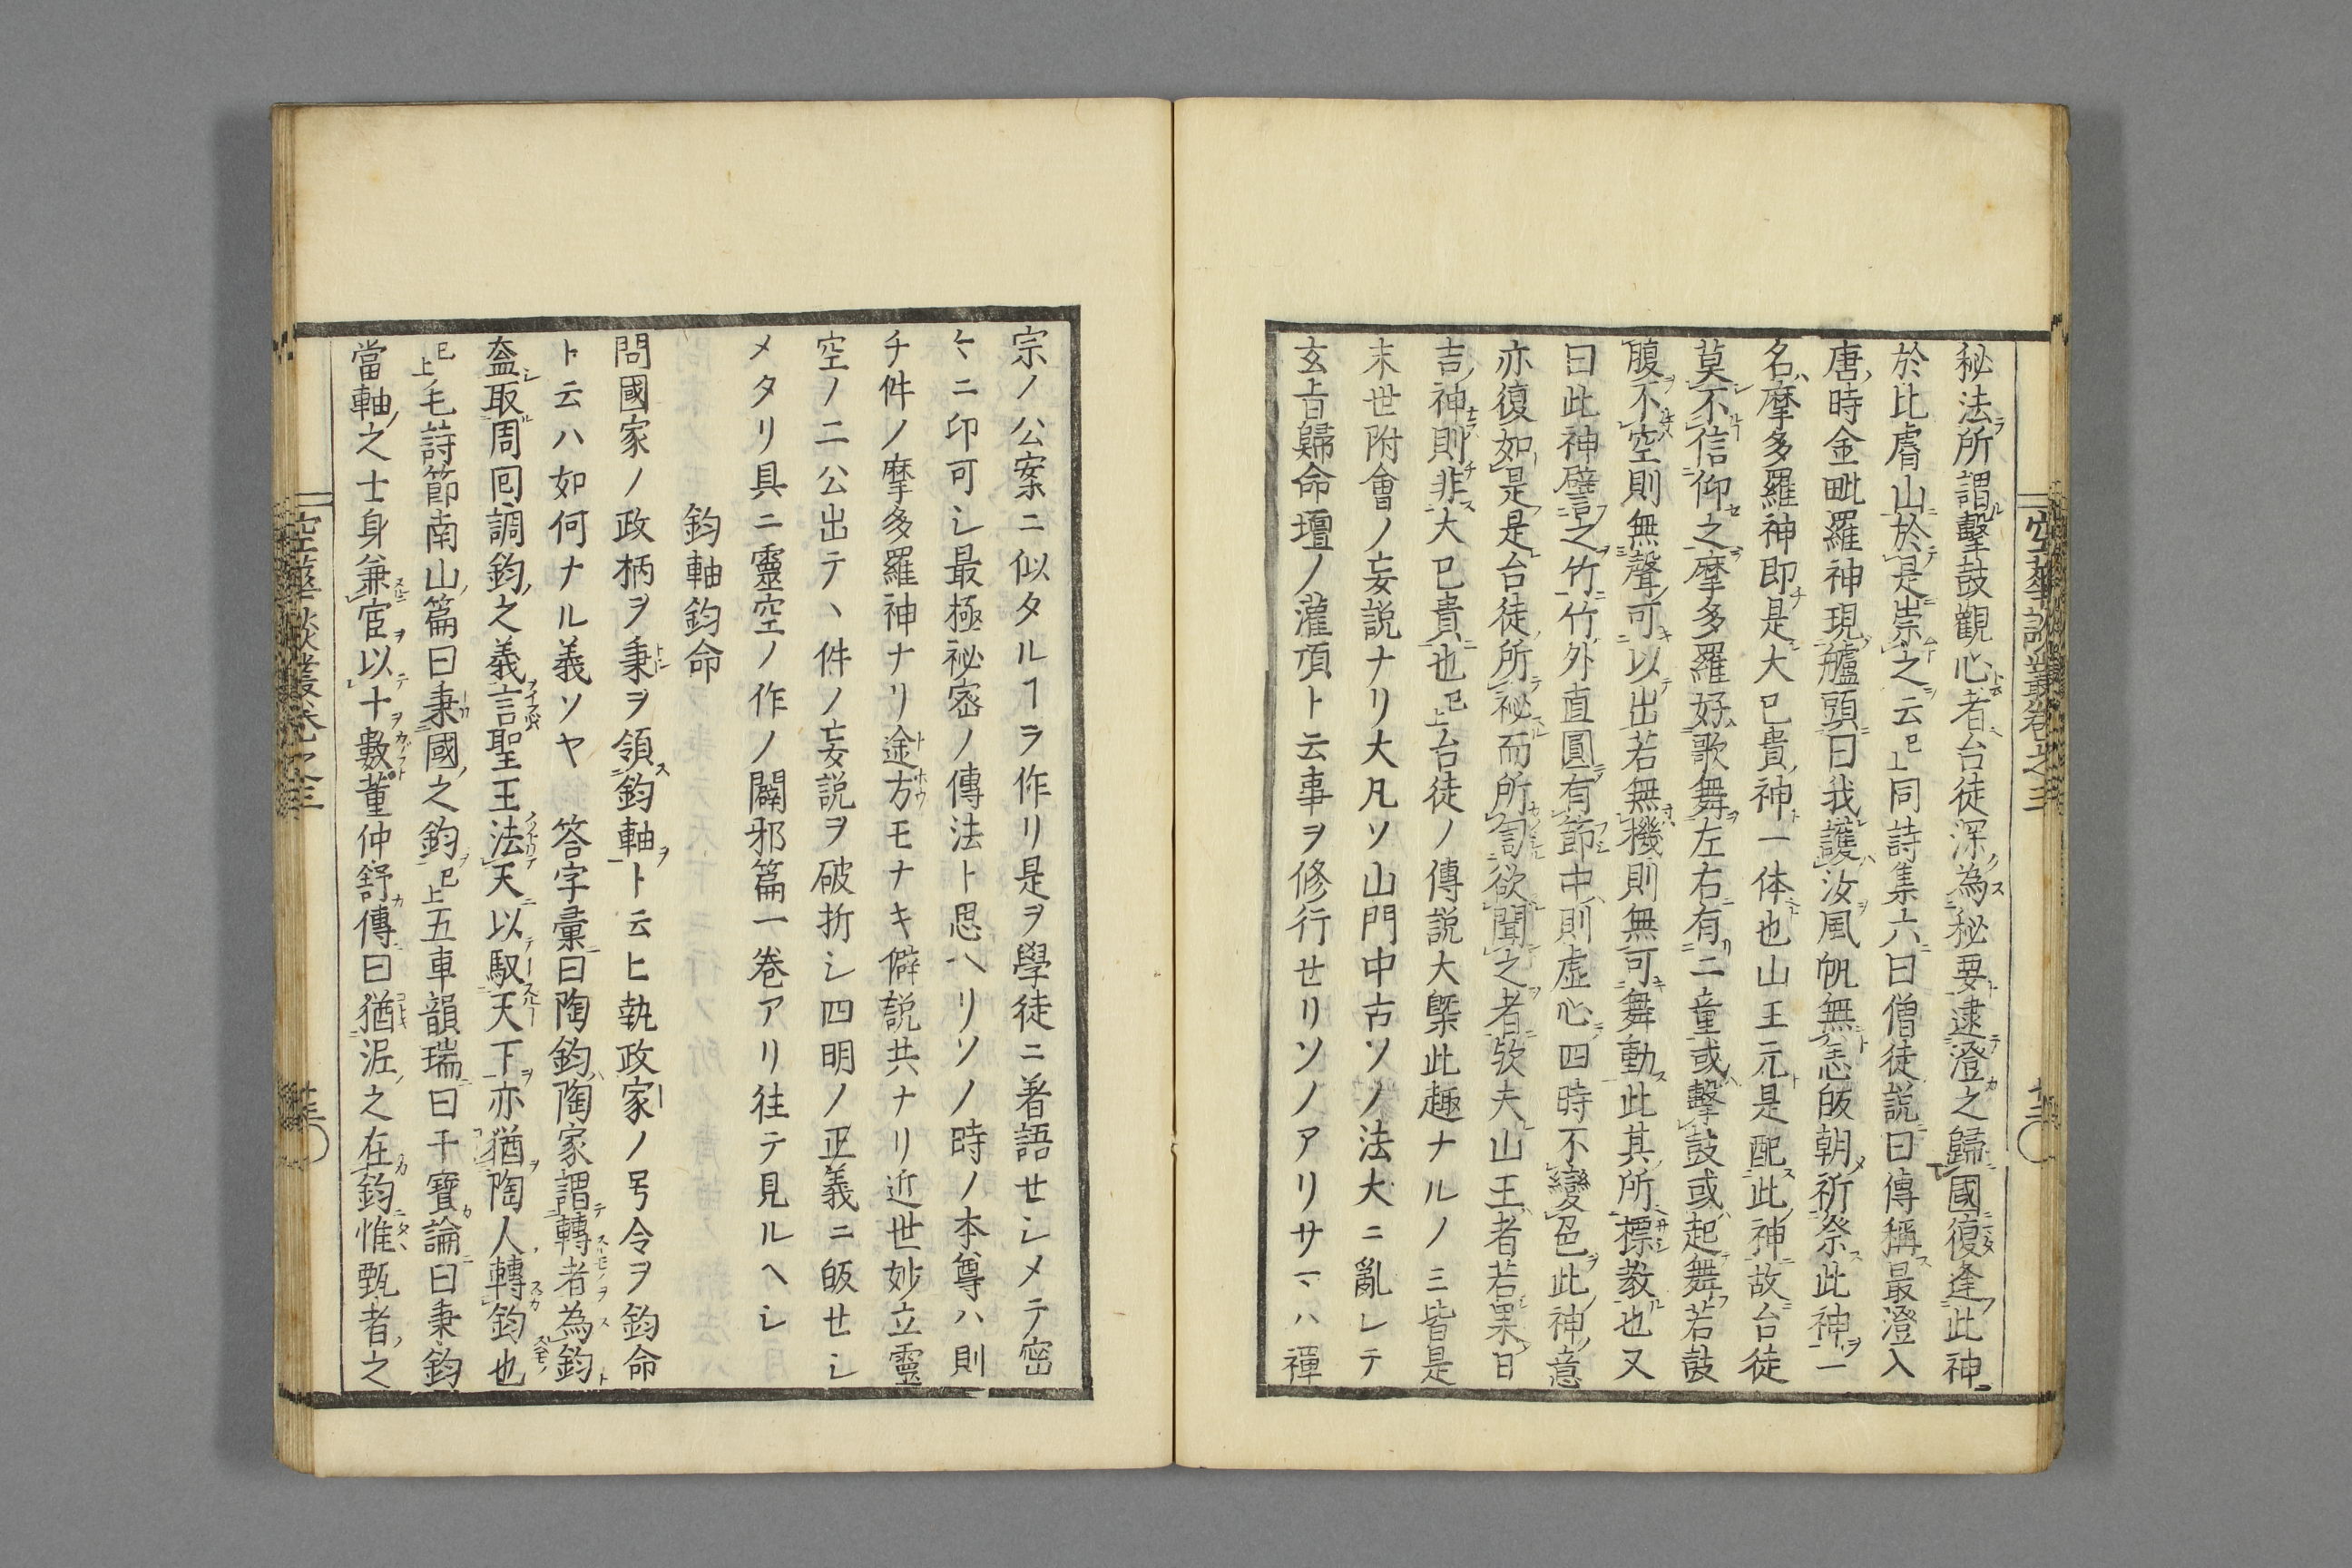 秘法所謂擊鼓觀心者台徒深為秘要逮澄之歸國復逢此神
於此膚山於是崇之云已上同詩集六曰僧徒説曰傳稱最澄入
唐時金毗羅神現艫頭曰我護汝風帆無恙皈朝祈祭此神一
名摩多羅神即是大巳貴神一体也山王元是配此神故台徒
莫不信仰之摩多羅好歌舞左右有二童或擊鼓或起舞若鼓
腹不空則無聲可以出若無機則無可舞動此其所標教也又
曰此神譬之竹竹外直圓有節中則虚心四時不變色此神意
亦復如是是台徒所祕而所訇欲聞之者欤夫山王者若果日
吉神則非大巳貴也已上台徒ノ傳説大槩此趣ナルノミ皆是
末世附會ノ妄説ナリ大凡ソ山門中古ソノ法大ニ亂レテ
玄旨歸命壇ノ灌頂ト云事ヲ修行せリソノアリサマハ禪
宗ノ公案ニ似タルヿヲ作リ是ヲ學徒ニ著語せシメテ密
々ニ印可シ最極祕密ノ傳法ト思ヘリソノ時ノ本尊ハ則
チ件ノ摩多羅神ナリ途方モナキ僻説共ナリ近世妙立靈
空ノ二公出テヽ件ノ妄説ヲ破折シ四明ノ正義ニ皈せシ
メタリ具ニ靈空ノ作ノ闢邪篇一卷アリ往テ見ルヘシ
鈞軸鈞命
問國家ノ政柄ヲ秉ヲ領鈞軸ト云ヒ執政家ノ号令ヲ鈞命
ト云ハ如何ナル義ソヤ　答字彙曰陶鈞陶家謂轉者為鈞
盍取周囘調鈞之義言聖王法天以馭天下亦猶陶人轉鈞也
已上毛詩節南山篇曰秉國之鈞已上五車韻瑞曰干寶論曰秉鈞
當軸之士身兼宦以十數董仲舒傳曰猶泥之在鈞惟甄者之
空華談叢卷之三